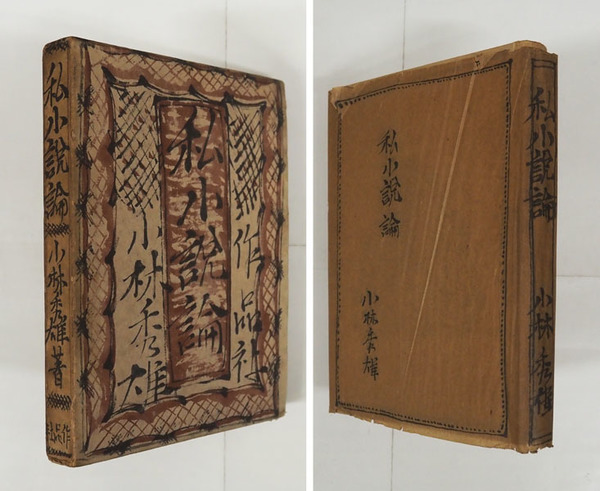 私小説論
小林秀雄著
作品社
私小説論
作品社
小林秀雄
私小説論
小林秀雄
私小説論
小林秀雄